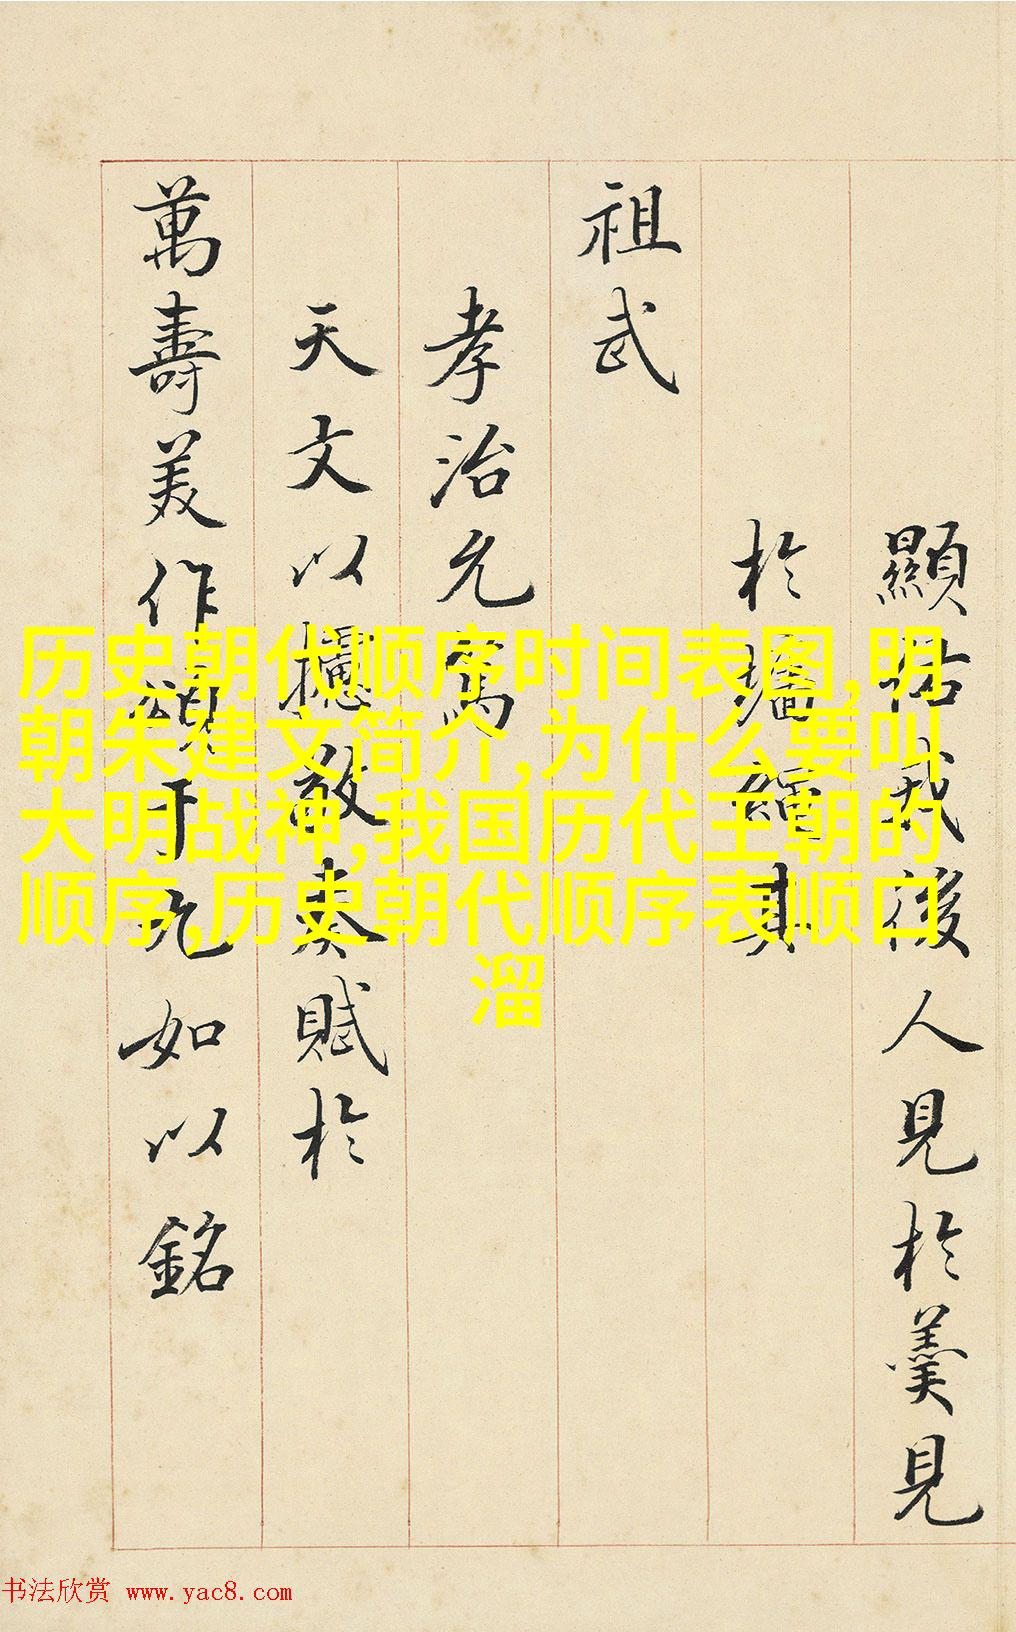 顯佑我後人見於羹見
於墻繩其
祖武
孝治允篤
天文以攄敬奏賦於
萬壽美作頌于九如以銘
历史朝代顺序时间表图,明
朝朱建文简介,为什么要叫
大明战神,我国历代王朝的
顺序,历史朝代顺序表顺口
溜
书法欣赏 www.yac8.com